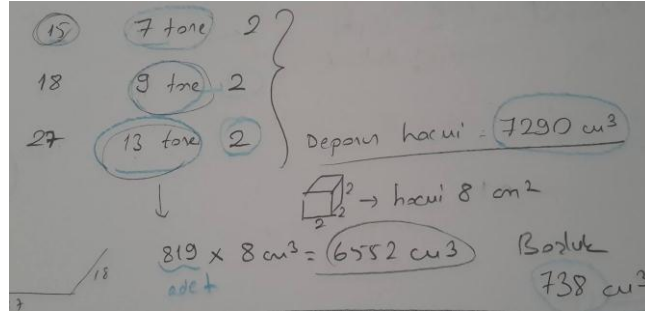 15 7 tane 2
18 9 tane 2
27 13 tane 2
Deponun hacmi = 7290 cm³
2 2 2 → hacmi 8 cm²
819 x 8 cm³ = 6552 cm3
adet
Boşluk
738 cm³
18
7